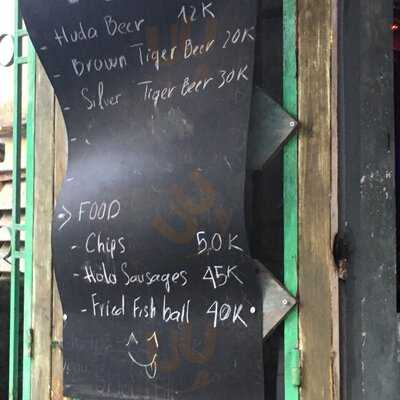 - Huda Beer 12K
- Brown Tiger Beer 20K
- Silver Tiger Beer 30K
-
-
-> FOOD
- Chips 50K
- Halo Sausages 45K
- Fried Fish ball 40K